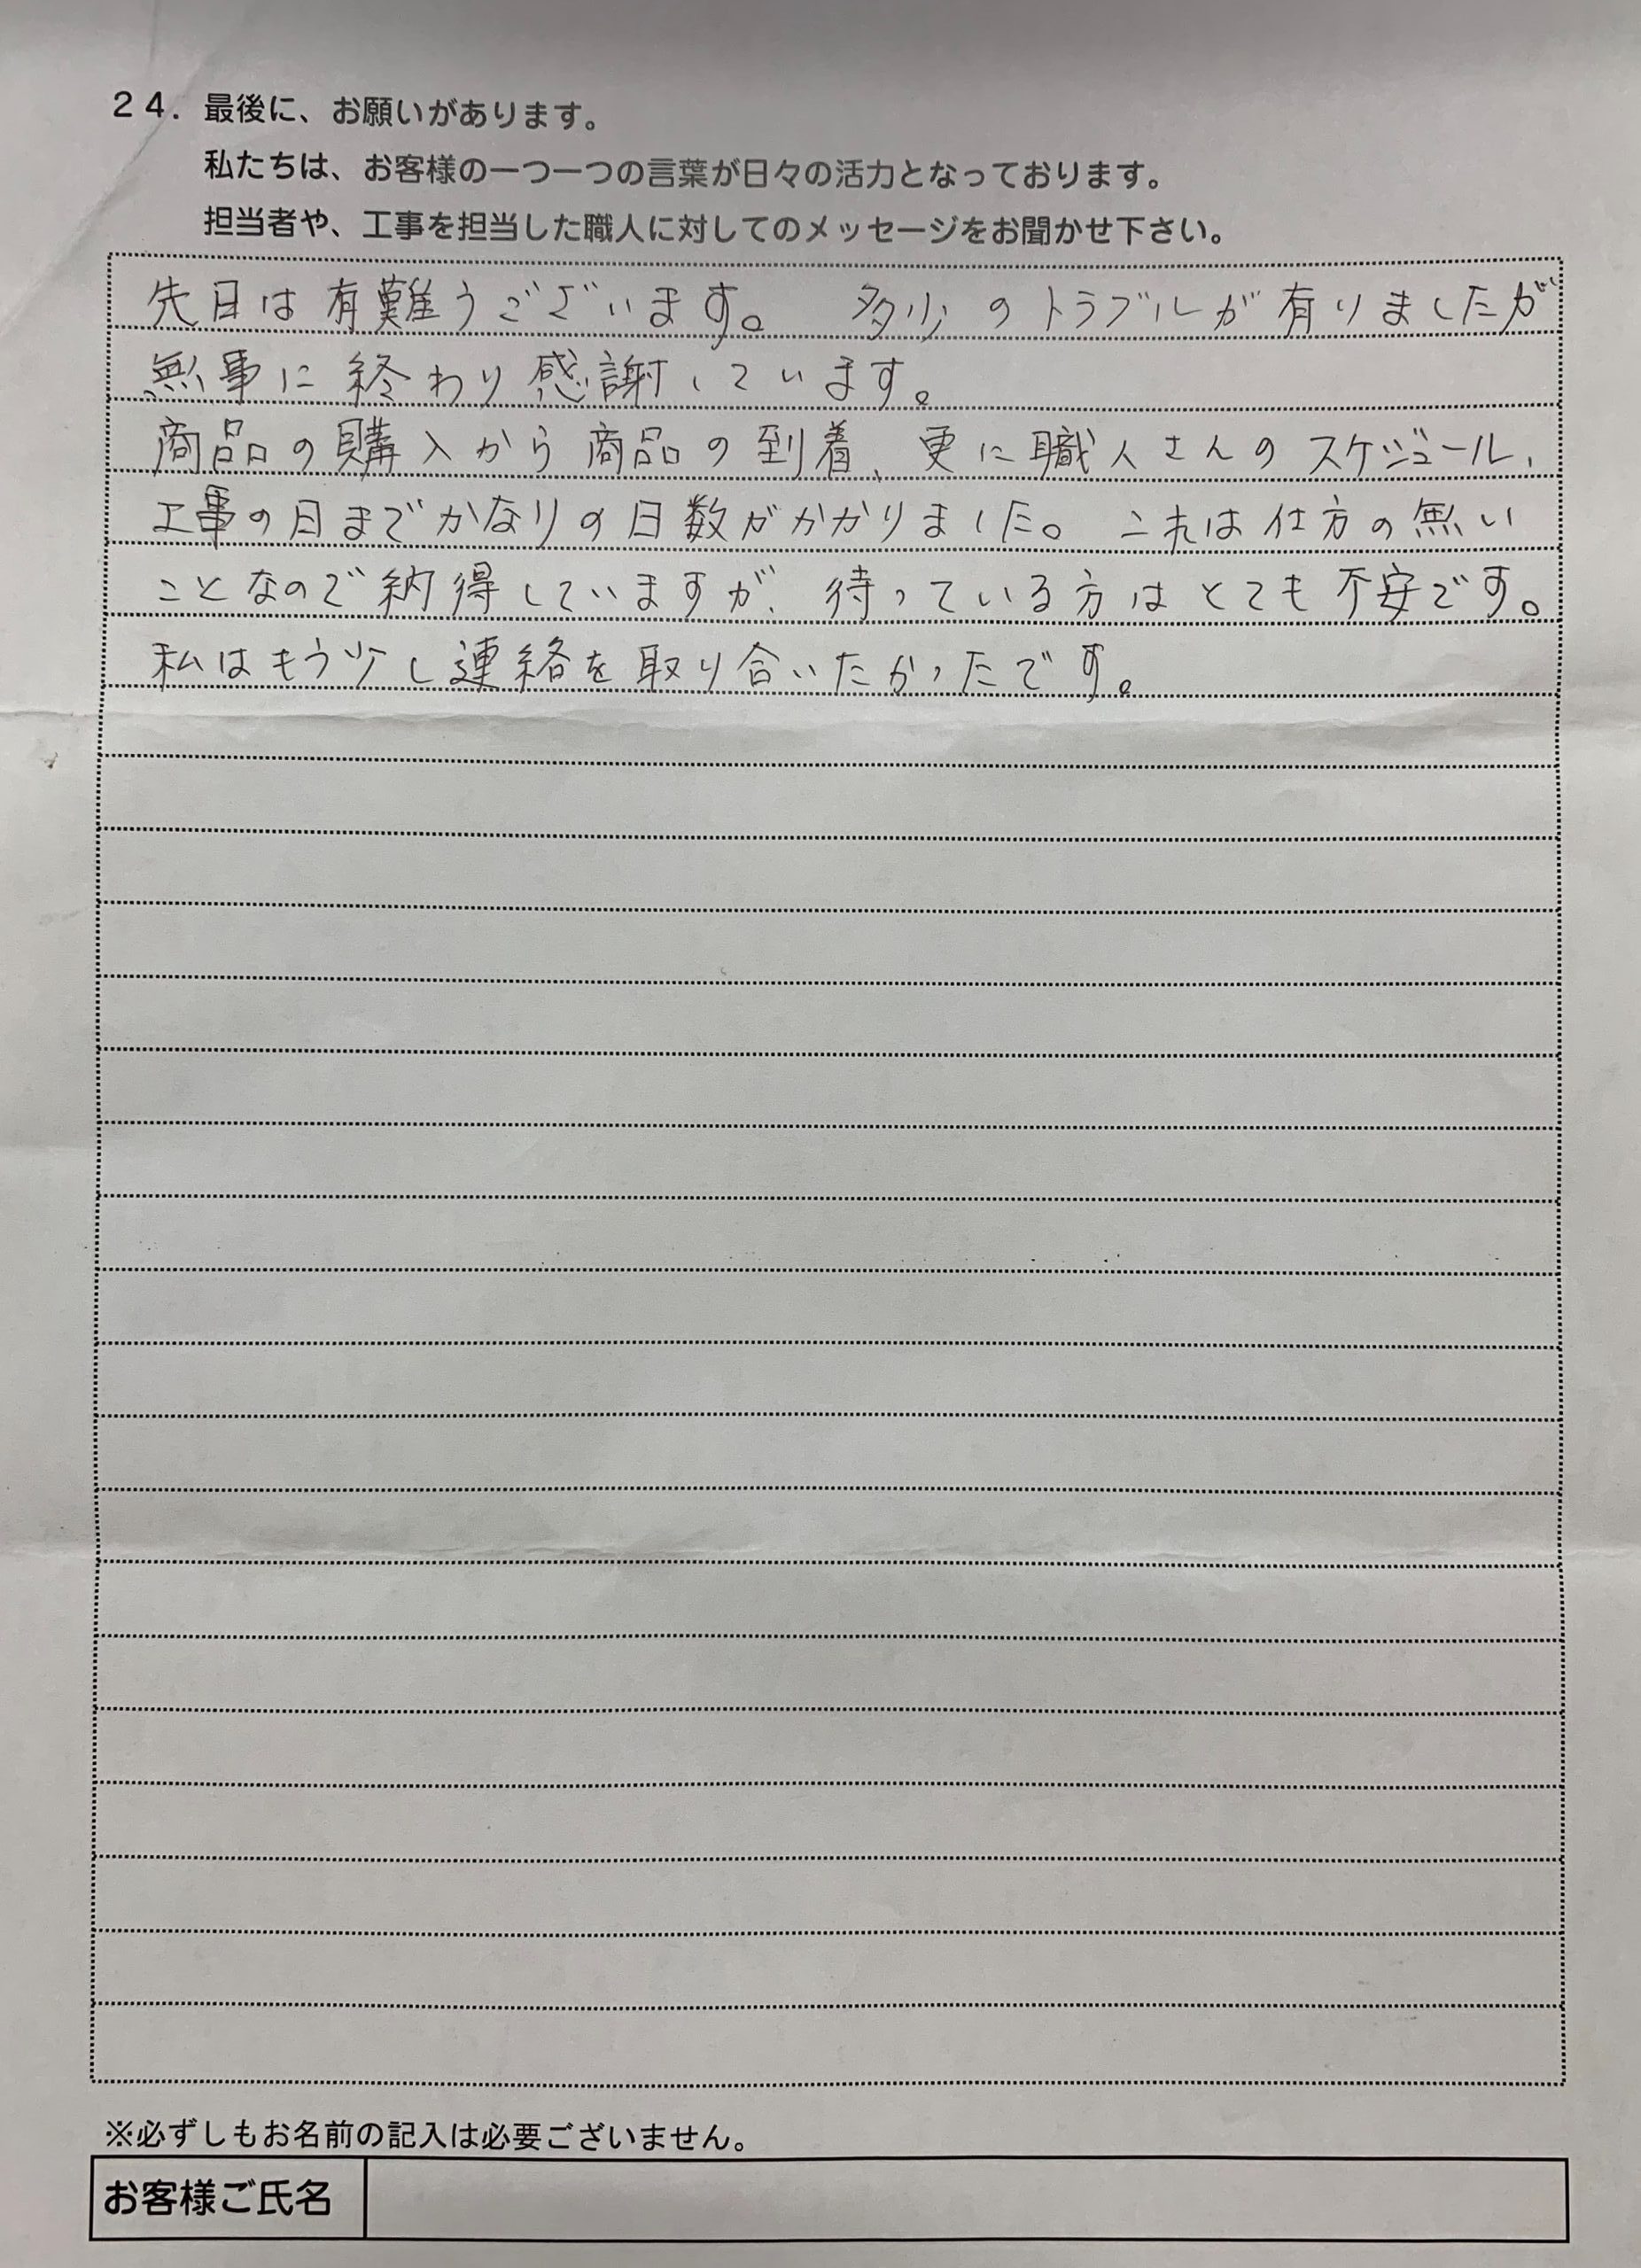 24. 最後に、お願いがあります。
私たちは、お客様の一つ一つの言葉が日々の活力となっております。
担当者や、工事を担当した職人に対してのメッセージをお聞かせ下さい。
先日は有難うございます。 多少のトラブルが有りましたが
無事に終わり感謝しています。
商品の購入から商品の到着、更に職人さんのスケジュール、
工事の日までかなりの日数がかかりました。これは仕方の無い
ことなので納得していますが、待っている方はとても不安です。
私はもう少し連絡を取り合いたかったです。
※必ずしもお名前の記入は必要ございません。
お客様ご氏名